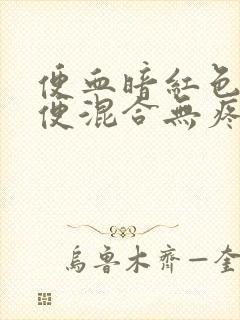 便血暗紅色
便混合無疼
烏魯木齊一奎